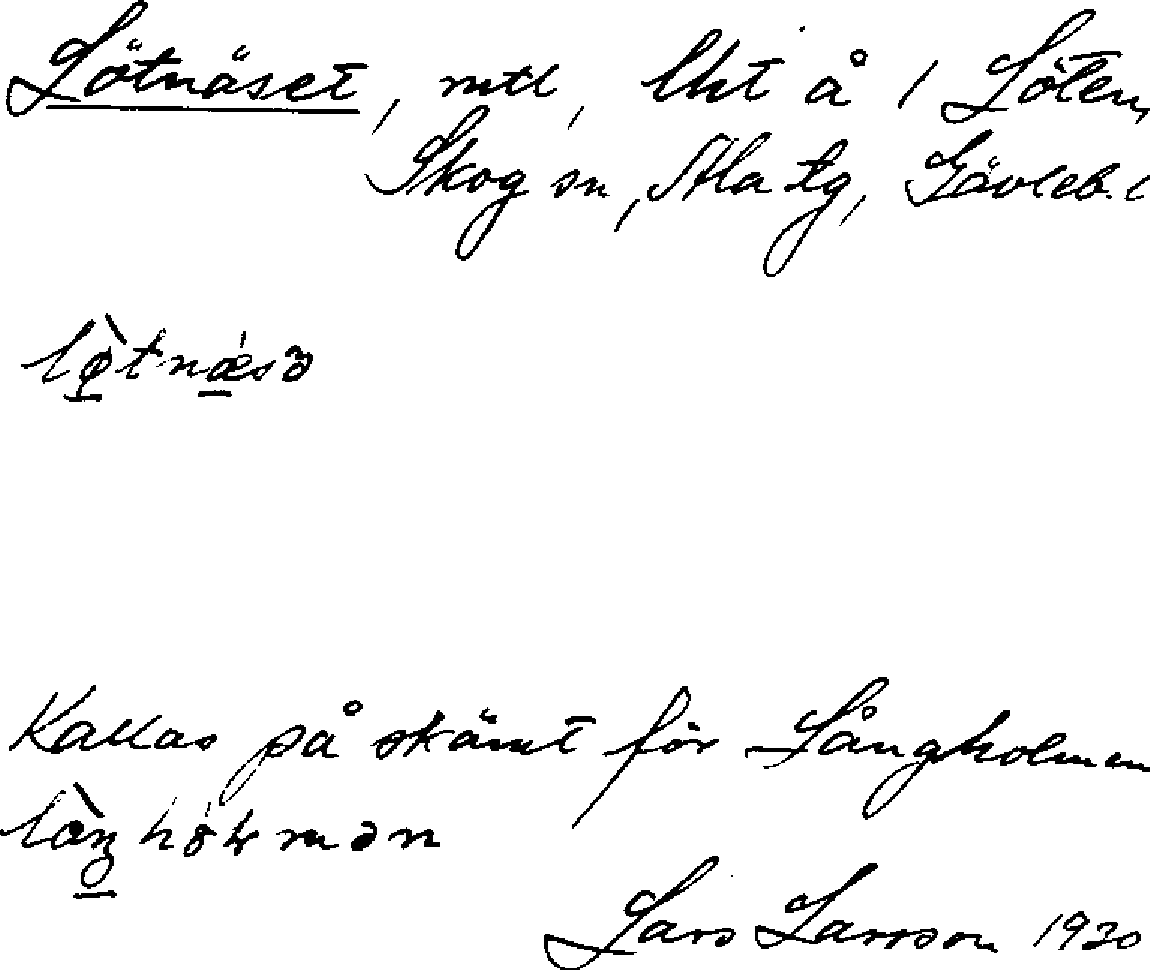 Lötnäset, mtl, lht å i Löten,
Skog sn, Ala tg, Gävleb. l
lø̀tnǽsə
Kallas på skämt för Långholmen
lòŋhólmən
Lars Larsson 1930